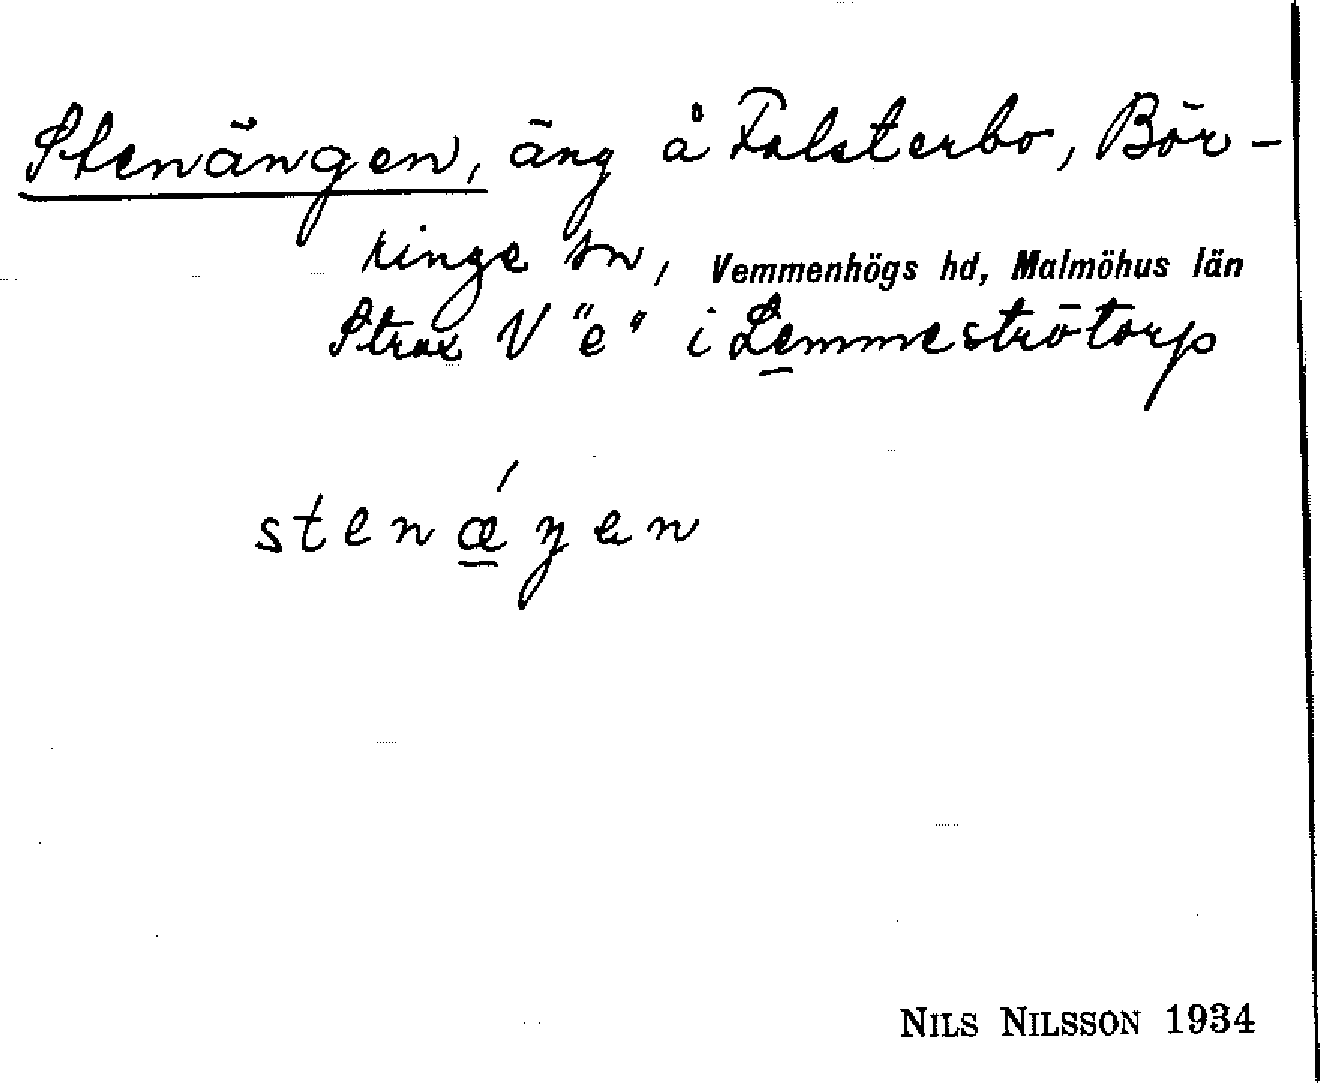 Stenängen, äng å Falsterbo, Bör-
ringe sn, Vemmenhögs hd, Malmöhus län
Strax V "e" i Lemmeströtorp
stenǽŋen
NILS NILSSON 1934